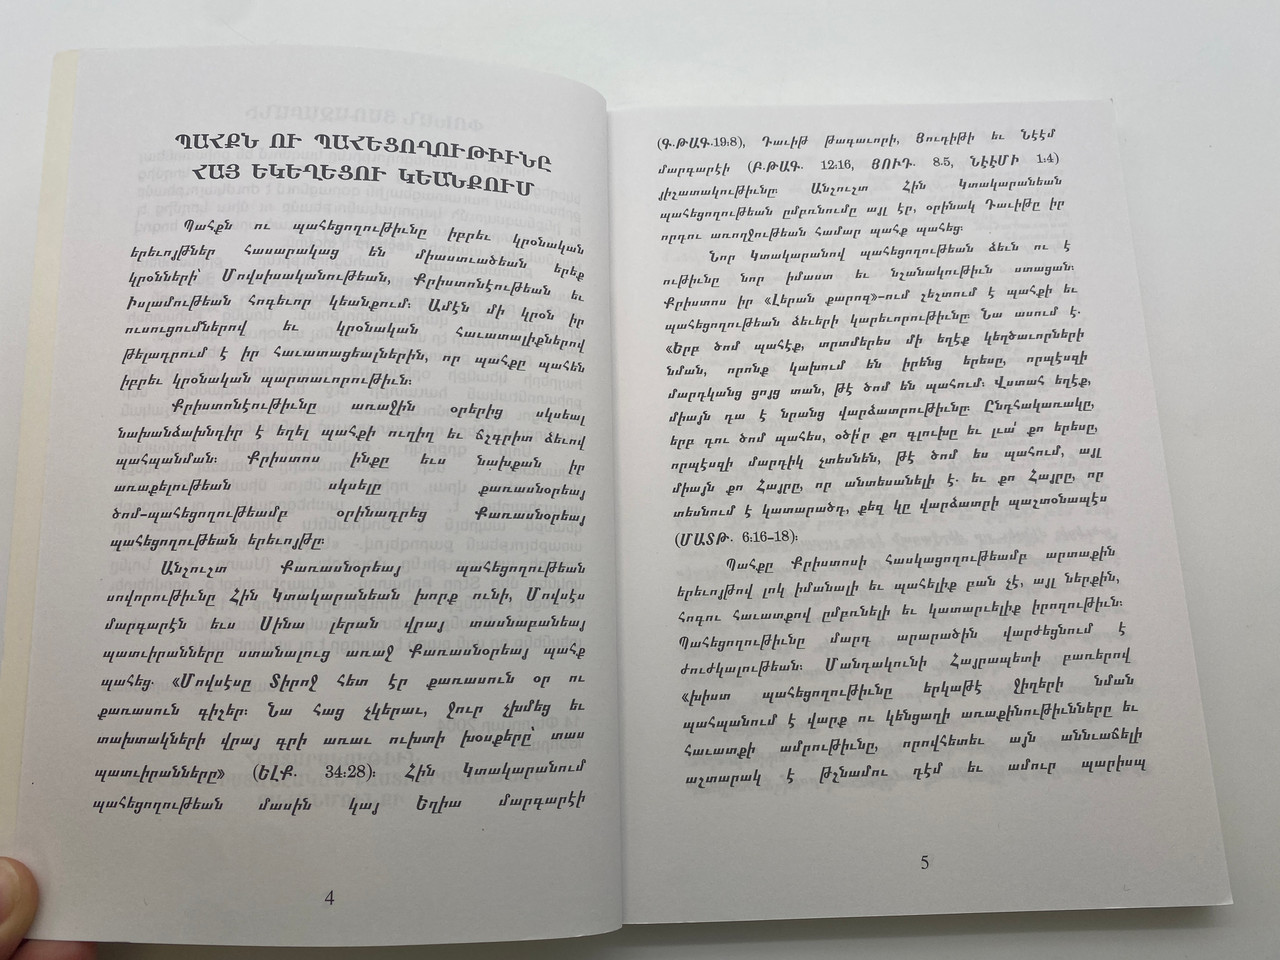 ՊԱՀՔՆ ՈՒ ՊԱՀԵՑՈՂՈՒԹԻՒՆԸ
ՀԱՅ ԵԿԵՂԵՑՈՒ ԿԵԱՆՔՈՒՄ
Պահքն ու պահեցողութիւնը իբրեւ կրօնական
երեւոյթներ հասարակաց են միաստւածեան երեք
կրօնների՝ Մովսիսականութեան, Քրիստոնէութեան եւ
Իսլամութեան հոգեւոր կեանքում։ Ամէն մի կրօն իր
ուսուցումներով եւ կրօնական հաւատալիքներով
թելադրում է իր հաւատացեալներին, որ պահքը պահեն
իբրեւ կրօնական պարտաւորութիւն։
Քրիստոնէութիւնը առաջին օրերից սկսեալ
նախանձախնդիր է եղել պահքի ուղիղ եւ ճշգրիտ ձեւով
պահպանման։ Քրիստոս ինքը եւս նախքան իր
առաքելութեան սկսելը քառասնօրեայ
ծոմ-պահեցողութեամբ օրինադրեց Քառասնօրեայ
պահեցողութեան երեւոյթը։
Անշուշտ Քառասնօրեայ պահեցողութեան
սովորութիւնը Հին Կտակարանեան խորք ունի, Մովսէս
մարգարէն եւս Սինա լերան վրայ տասնաբանեայ
պատւիրանները ստանալուց առաջ Քառասնօրեայ պահք
պահեց։ «Մովսէսը Տիրոջ հետ էր քառասուն օր ու
քառասուն գիշեր։ Նա հաց չկերաւ, ջուր չխմեց եւ
տախտակների վրայ գրի առաւ ուխտի խօսքերը՝ տաս
պատւիրանները» (ԵԼՔ. 34:28)։ Հին Կտակարանում
պահեցողութեան մասին կայ Եղիա մարգարէի
4
(Գ.ԹԱԳ.19:8), Դաւիթ թագաւորի, Յուդիթի եւ Նէէմ
մարգարէի (Բ.ԹԱԳ. 12:16, ՅՈՒԴ. 8:5, ՆԷԷՄԻ 1:4)
յիշատակութիւնը։ Անշուշտ Հին Կտակարանեան
պահեցողութեան ըմբռնումը այլ էր, օրինակ Դաւիթը իր
որդու առողջութեան համար պահք պահեց։
Նոր Կտակարանով պահեցողութեան ձեւն ու է
ութիւնը նոր իմաստ եւ նշանակութիւն ստացան։
Քրիստոս իր «Լերան քարոզ»-ում շեշտում է պահքի եւ
պահեցողութեան ձեւերի կարեւորութիւնը։ Նա ասում է.
«Երբ ծոմ պահէք, տրտմերես մի եղէք կեղծաւորների
նման, որոնք կախում են իրենց երեսը, որպէսզի
մարդկանց ցոյց տան, թէ ծոմ են պահում։ Վստահ եղէք,
միայն դա է նրանց վարձատրութիւնը։ Ընդհակառակը,
երբ դու ծոմ պահես, օծի՛ր քո գլուխը եւ լւա՛ քո երեսը,
որպէսզի մարդիկ չտեսնեն, թէ ծոմ ես պահում, այլ
միայն քո Հայրը, որ անտեսանելի է. եւ քո Հայրը, որ
տեսնում է կատարածդ, քեզ կը վարձատրի պաշտօնապէս
(ՄԱՏԹ. 6:16-18)։
Պահքը Քրիստոսի հասկացողութեամբ արտաքին
երեւոյթով լոկ իմանալի եւ պահելիք բան չէ, այլ ներքին,
հոգու հաւատքով ըմբռնելի եւ կատարւելիք իրողութիւն։
Պահեցողութիւնը մարդ արարածին վարժեցնում է
ժուժկալութեան։ Մանդակունի Հայրապետի բառերով
«խիստ պահեցողութիւնը երկաթէ ջիղերի նման
պահպանում է վարք ու կենցաղի առաքինութիւնները եւ
հաւատքի ամրութիւնը, որովհետեւ այն աննւաճելի
աշտարակ է թշնամու դէմ եւ ամուր պարիսպ
5